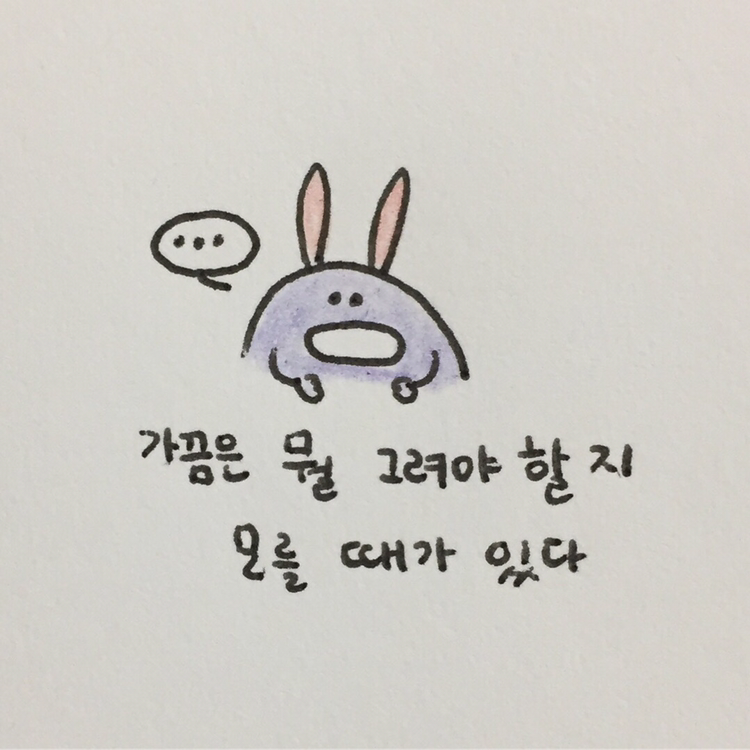 ...
가끔은 뭘 그려야 할 지
모를 때가 있다